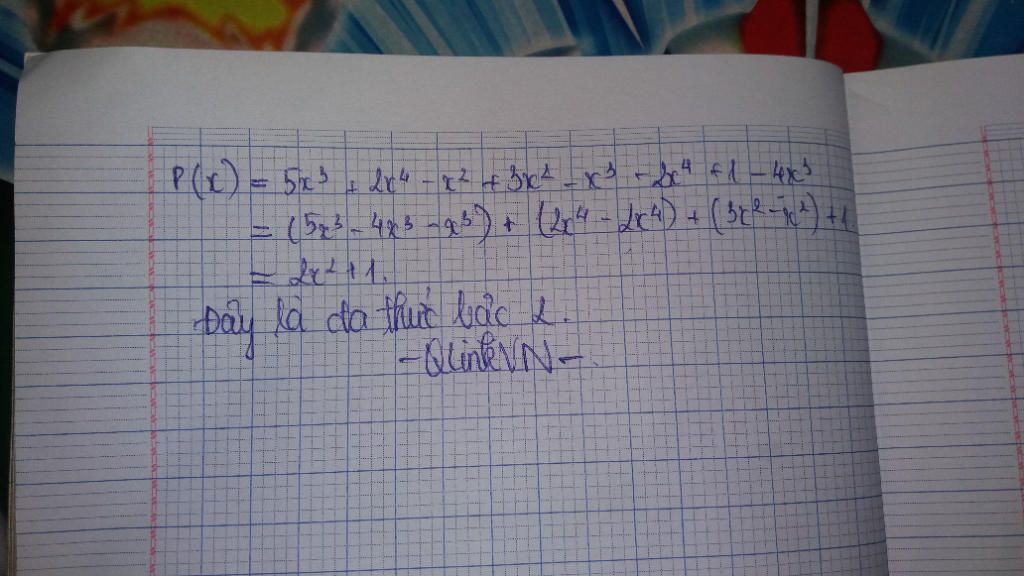 P(x) = 5x³ + 2x⁴ - x² + 3x² - x³ - 2x⁴ + 1 - 4x³
= (5x³ - 4x³ - x³) + (2x⁴ - 2x⁴) + (3x² - x²) + 1
= 2x² + 1.
Đây là đa thức bậc 2.
- QlinhVN -.